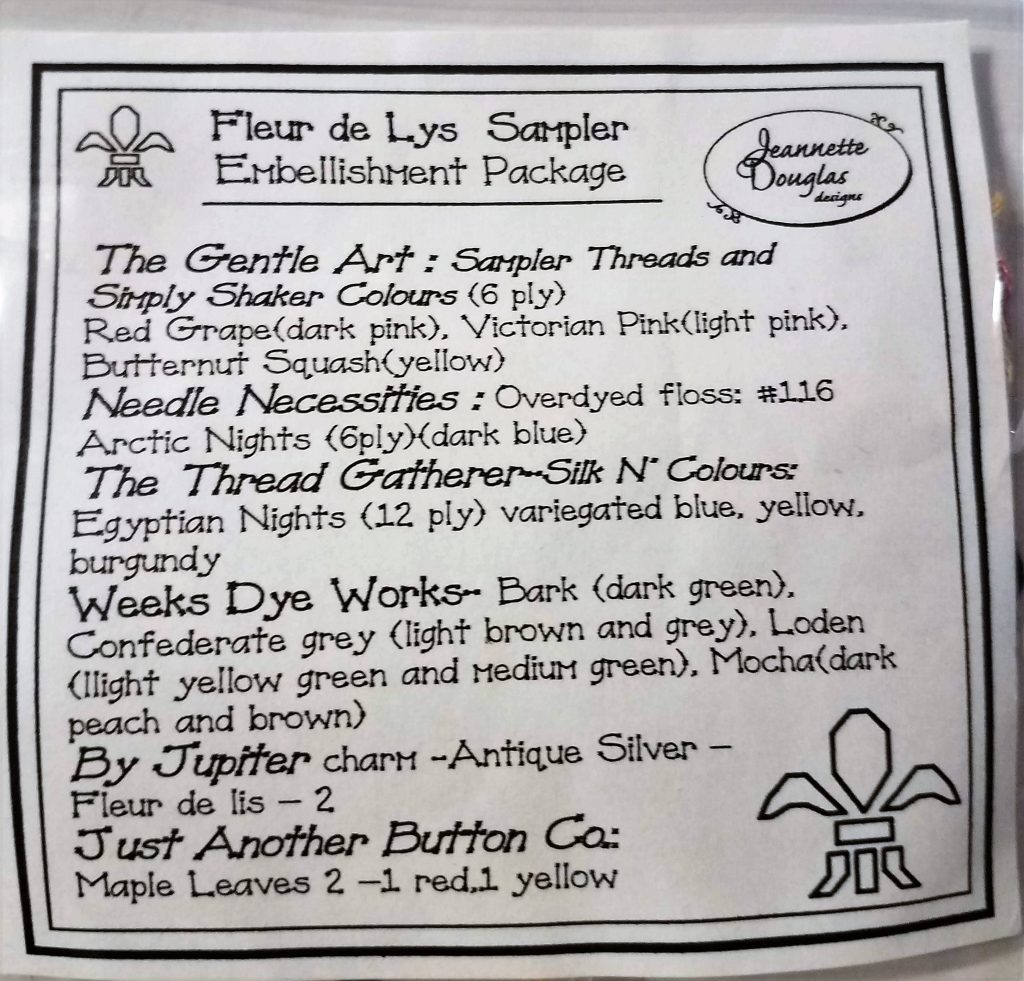 Fleur de Lys Sampler
Embellishment Package
Jeannette
Douglas
designs
The Gentle Art : Sampler Threads and
Simply Shaker Colours (6 ply)
Red Grape(dark pink), Victorian Pink(light pink),
Butternut Squash(yellow)
Needle Necessities : Overdyed floss: #116
Arctic Nights (6ply)(dark blue)
The Thread Gatherer-Silk N' Colours:
Egyptian Nights (12 ply) variegated blue, yellow,
burgundy
Weeks Dye Works- Bark (dark green),
Confederate grey (light brown and grey), Loden
(llight yellow green and medium green), Mocha(dark
peach and brown)
By Jupiter charm -Antique Silver –
Fleur de lis – 2
Just Another Button Co.:
Maple Leaves 2 –1 red,1 yellow